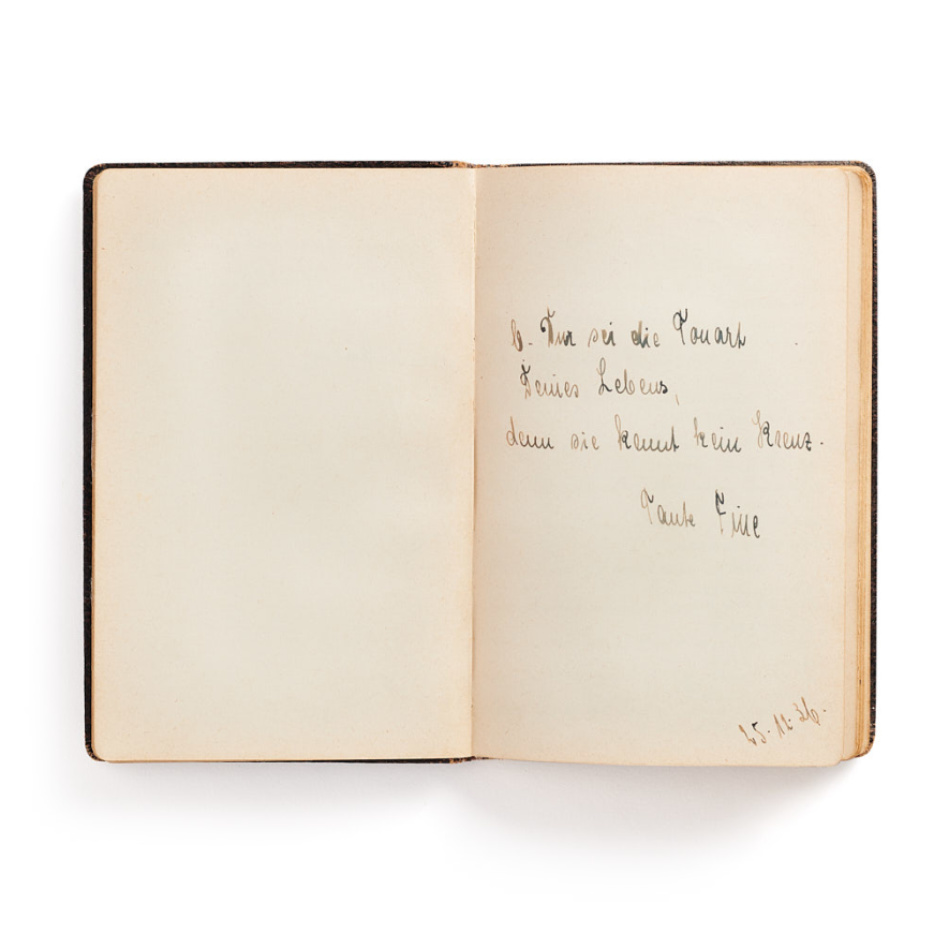 b. Dur sei die Tonart
Deines Lebens,
denn sie kennt kein Kreuz.
Tante Fine
25.12.36.